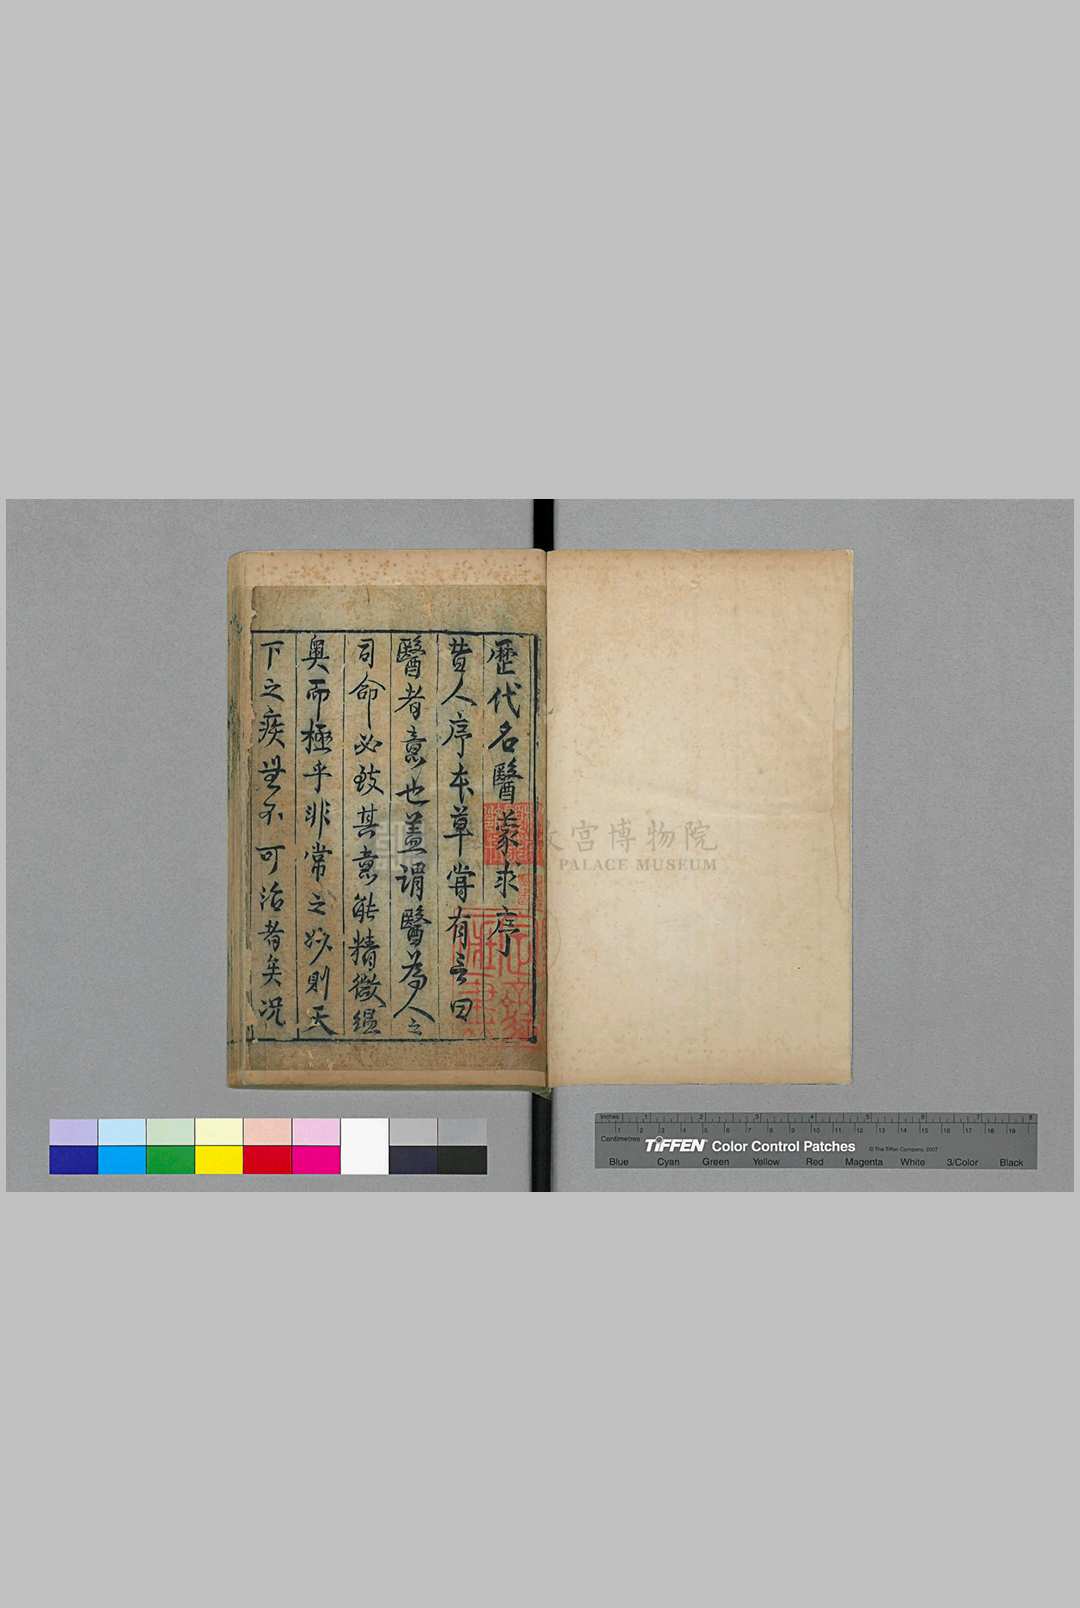 歷代名醫蒙求序
昔人序本草嘗有言曰
醫者意也蓋謂醫為人之
司命必致其意能精微緼
奧而極乎非常之妙則天
下之疾無不可治者矣況
故宮博物院
PALACE MUSEUM
Inches 1 2 3 4 5 6 7 8
Centimetres 1 2 3 4 5 6 7 8 9 10 11 12 13 14 15 16 17 18 19
TIFFEN Color Control Patches © The Tiffen Company, 2007
Blue Cyan Green Yellow Red Magenta White 3/Color Black